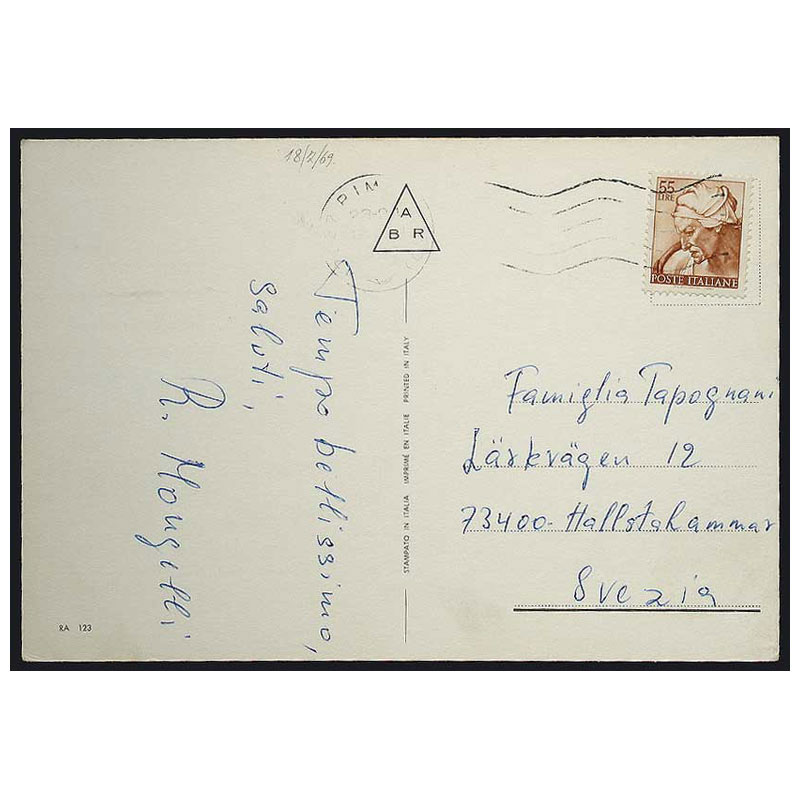 18/7/69.
RIM
A
B R
55
LIRE
POSTE ITALIANE
Tempo bellissimo,
saluti,
R. Mongelli
STAMPATO IN ITALIA IMPRIMÉ EN ITALIE PRINTED IN ITALY
Famiglia Tapognani
Lärkvägen 12
73400-Hallstahammar
Svezia
RA 123